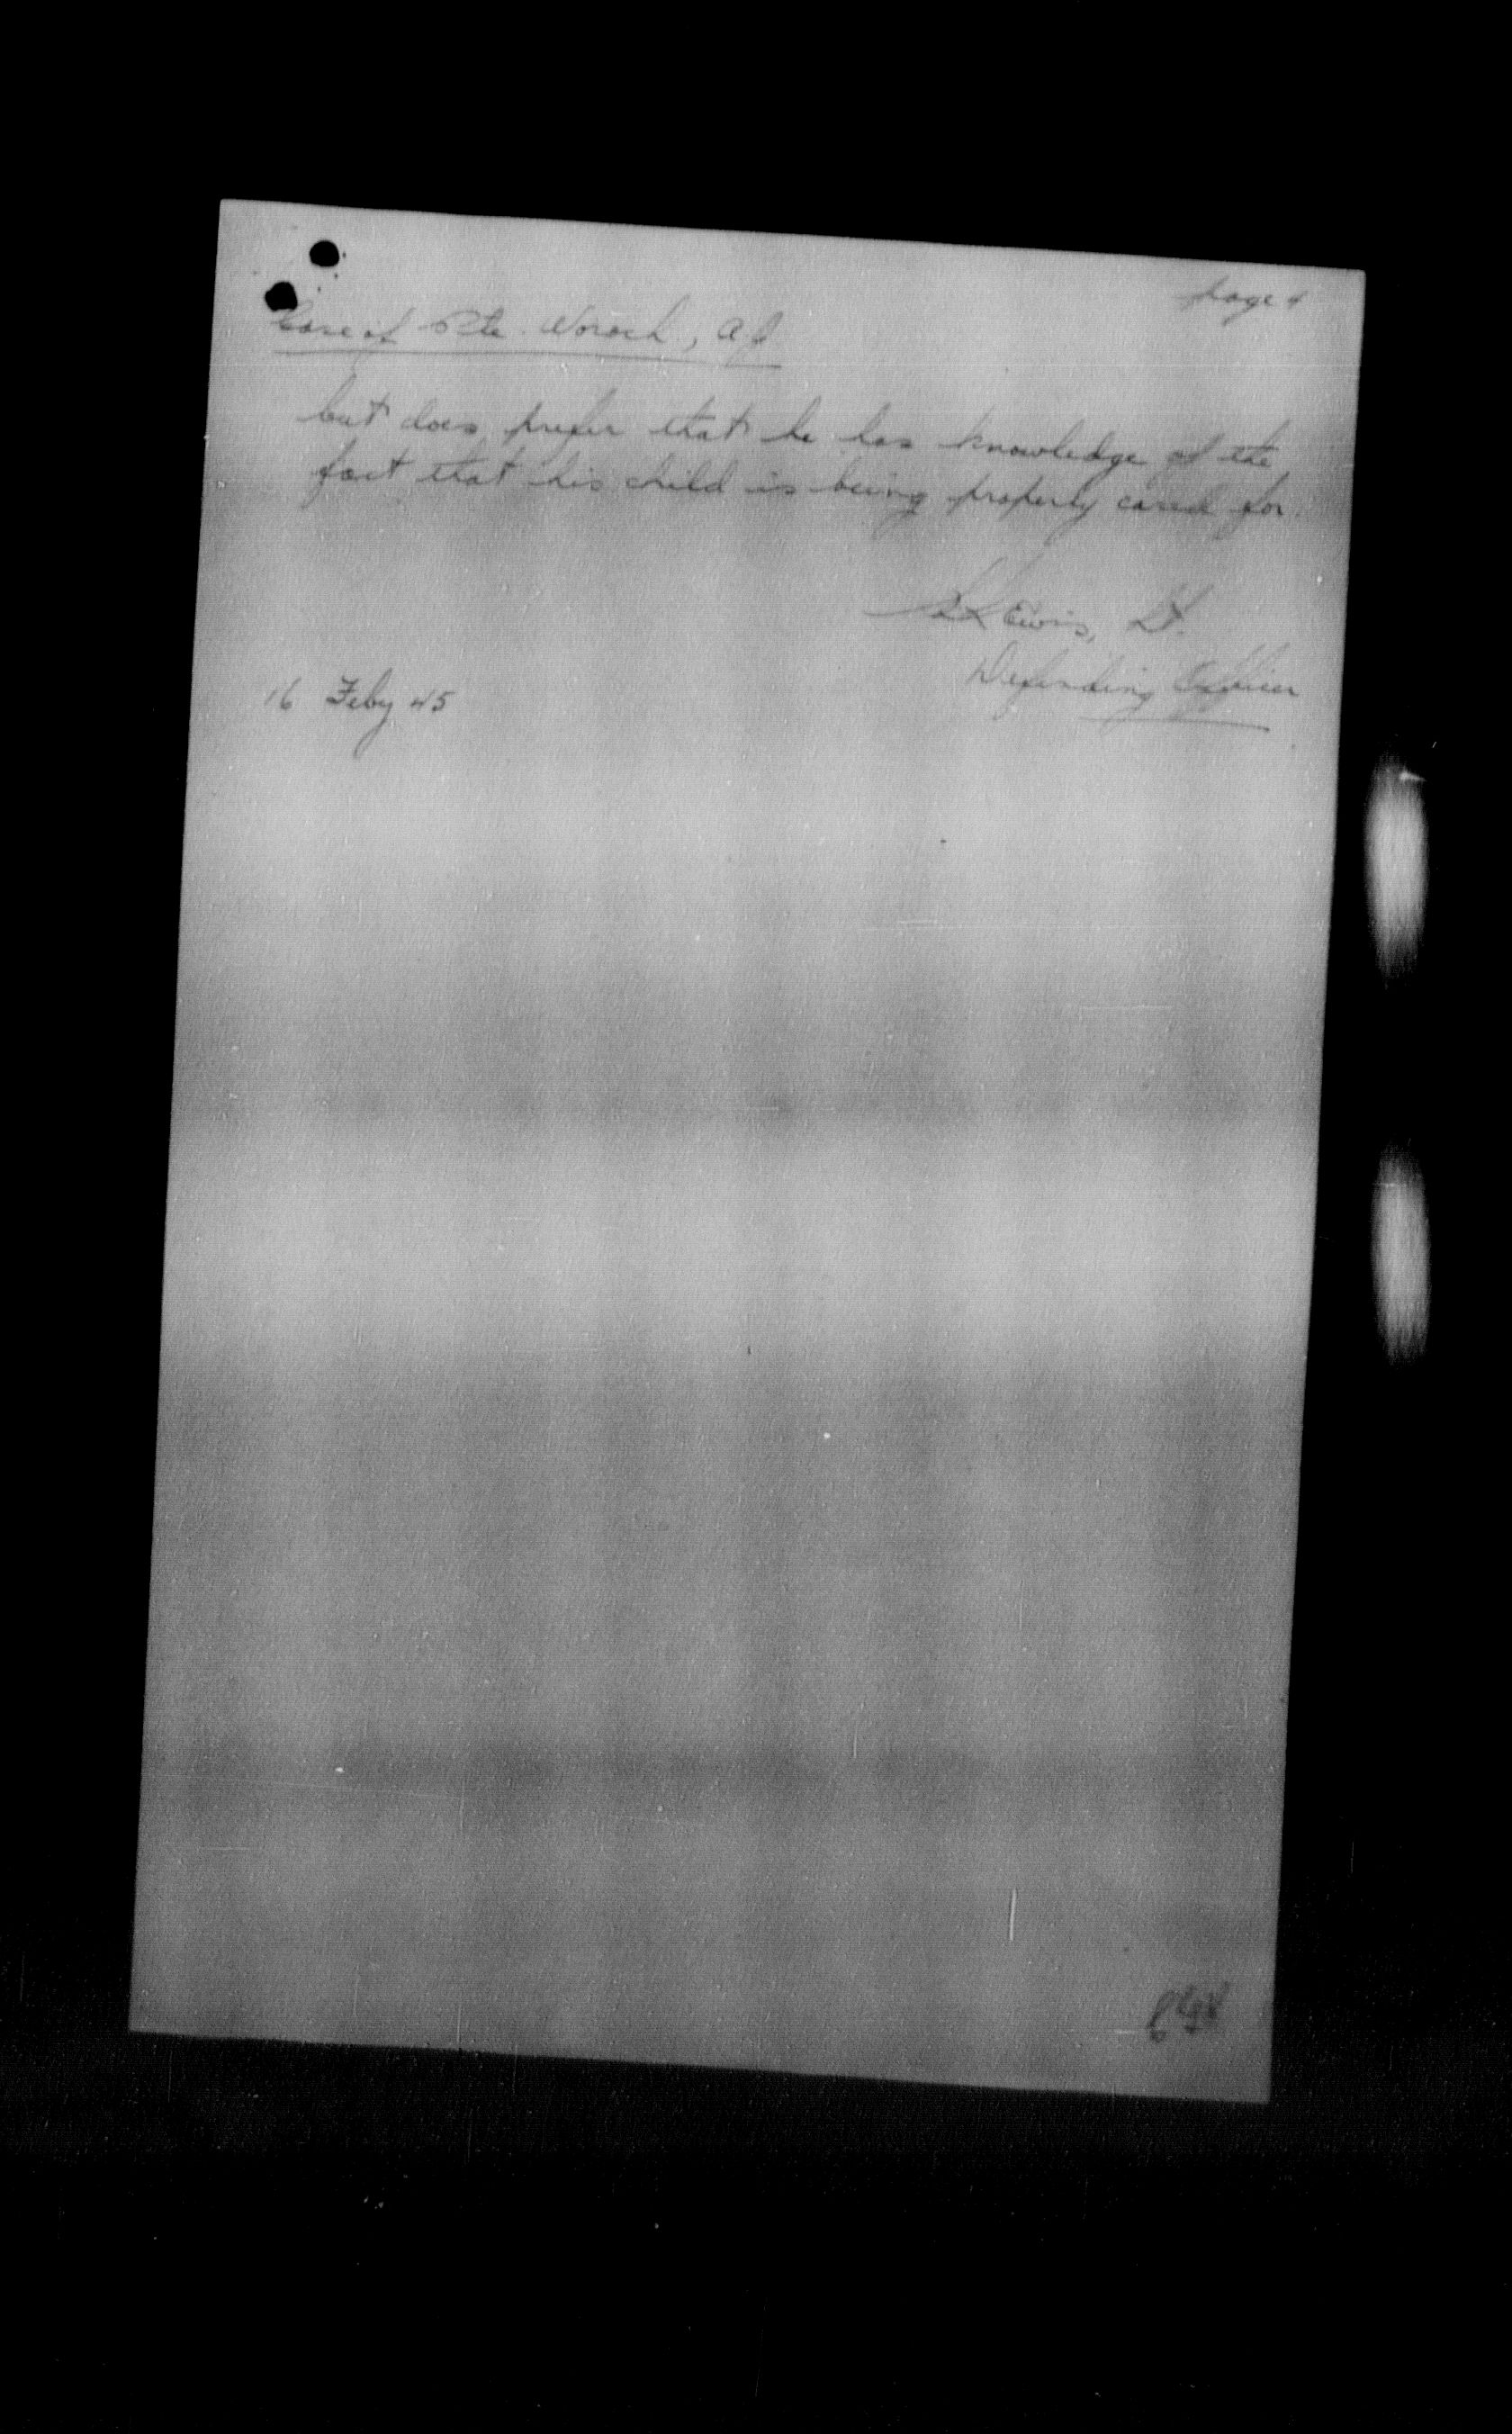 page 4
Case of Pte. Woroch, A J
but does prefer that he has knowledge of the
fact that his child is being properly cared for.
Lewis, Lt.
Defending Officer
16 Feby 45